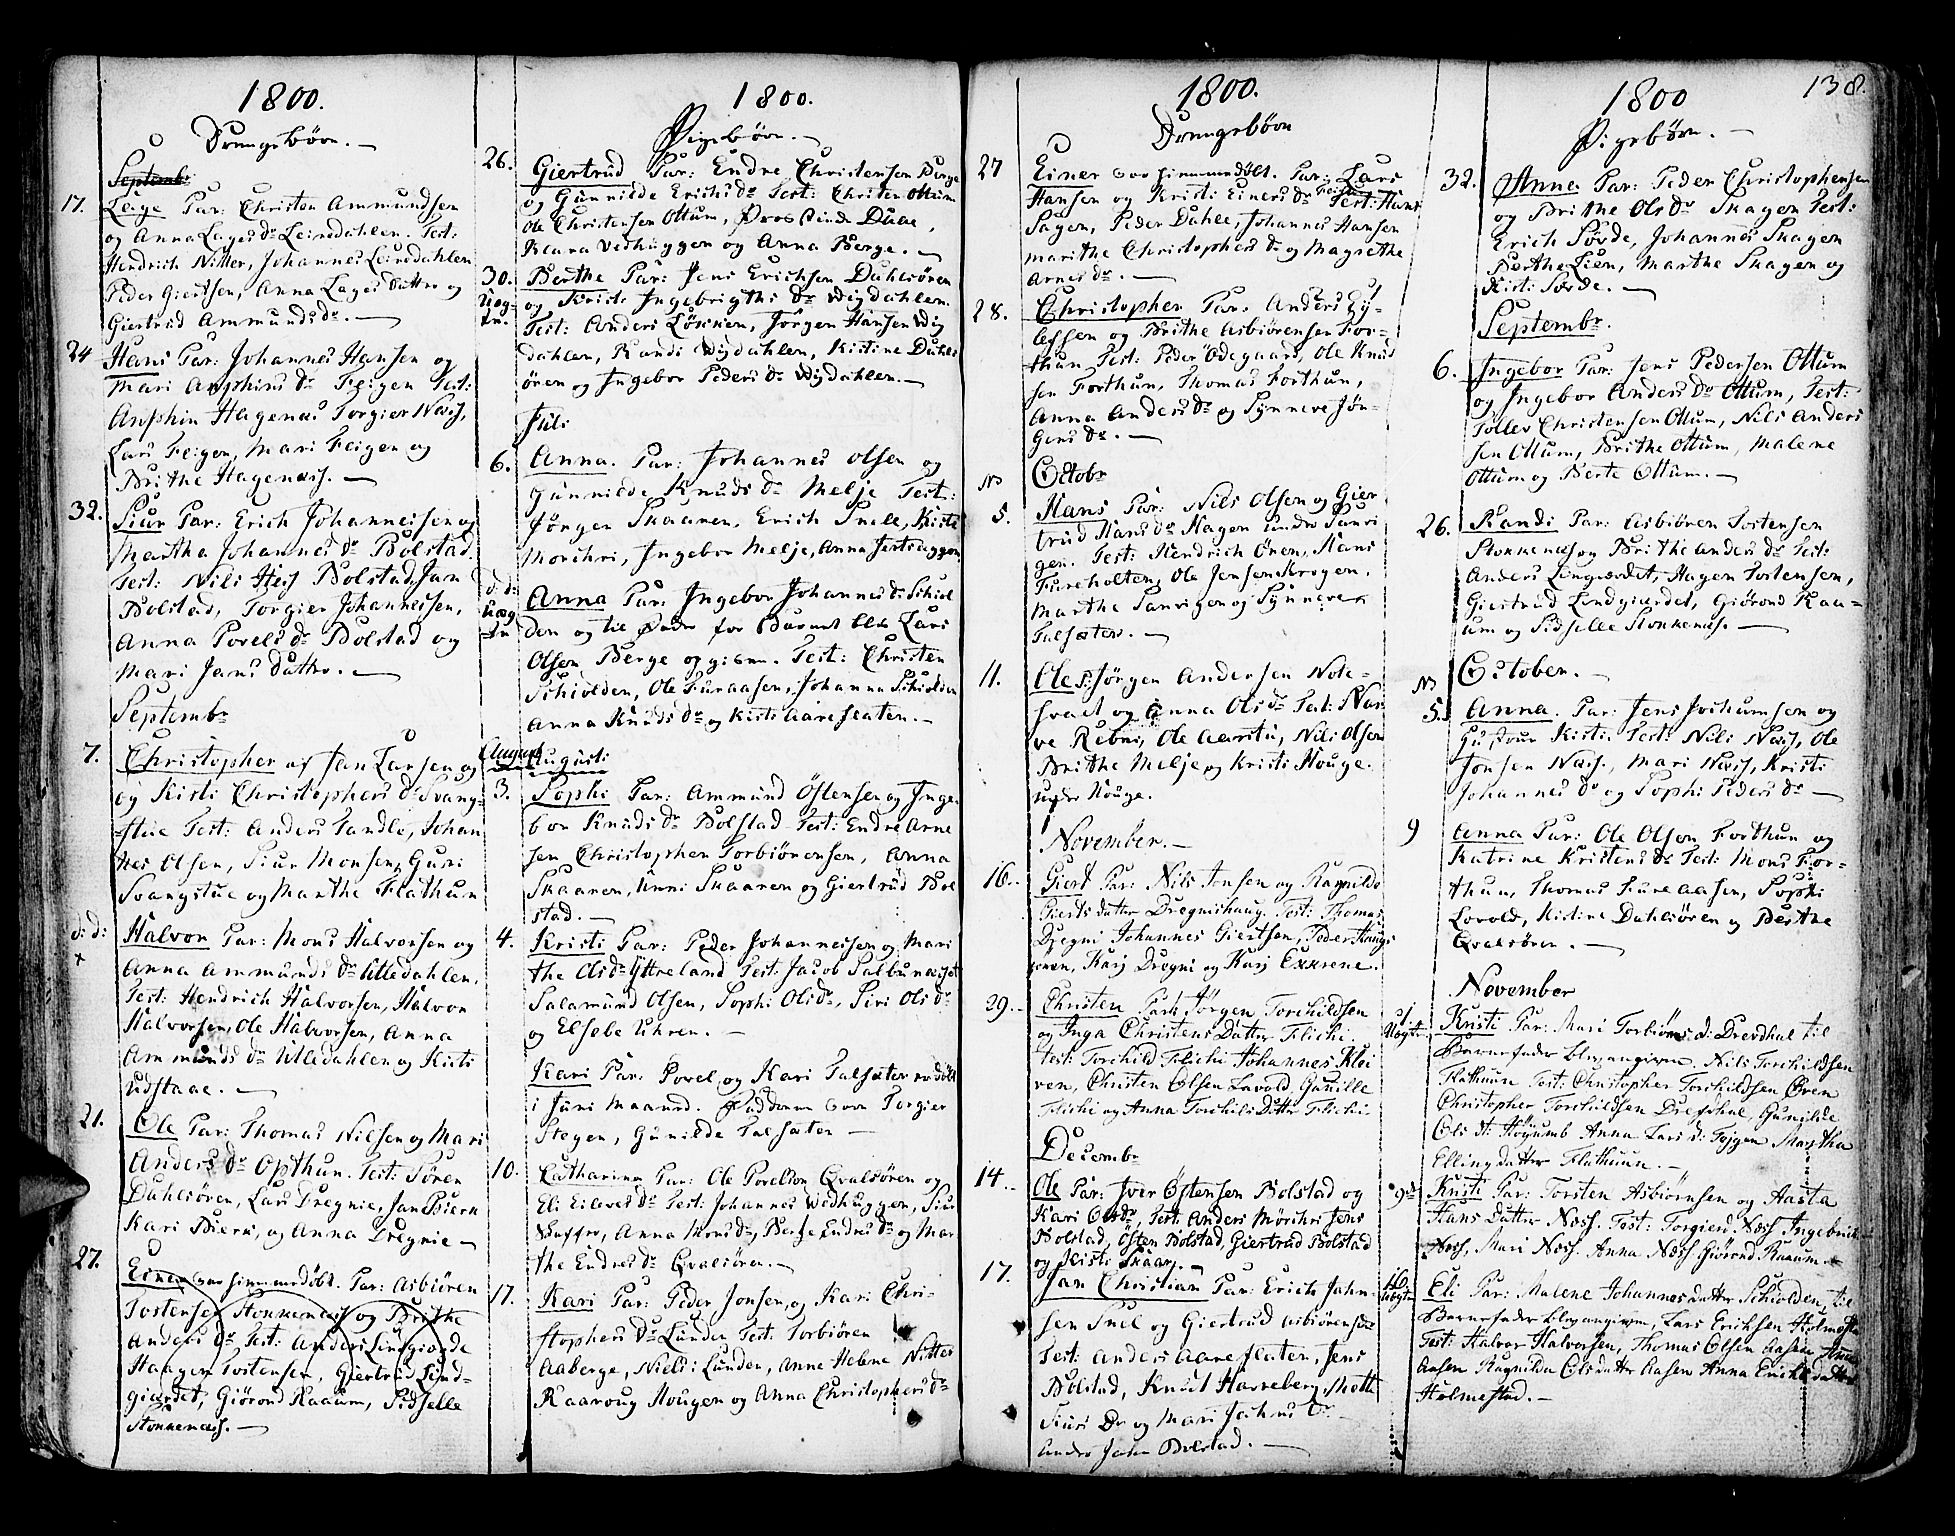 1800.
Drengebørn. —
Septembr
17. Leige Par: Christen Ammundsen
og Anna Lagesdr Leirdahlen. Test:
Hendrich Nitter, Johannes Leirdahlen
Peder Giertsen, Anna Lages Datter og
Giertrud Ammundsdr. —
24 Hans Par: Johannes Hansen og
Mari Anphinsdr Feigen Test:
Anphin Hagenæs Torgier Næss,
Lars Feigen, Mari Feigen og
Brithe Hagenæs. —
32. Siur Par: Erich Johannessen og
Martha Johannesdr Bolstad.
Test: Nils Bolstad, Jan
Bolstad, Torgier Johannessen,
Anna Povelsdr Bolstad og
Mari Jens Datter. —
Septembr
7. Christopher af Jan Larsen og
og Kisti Christophersdr Svang-
stue Test: Anders Sandlø, Johan
nes Olsen, Siur Monsen, Guri
Svangstue og Marthe Flathun
d: d: Halvor Par: Mons Halvorsen og
Anna Ammundsdr Uttedahlen,
Test: Hendrich Halvorsen, Halvor
Halvorsen, Ole Halvorsen, Anna
Ammundsdr Uttedahlen og Kisti
Udstaae. —
21. Ole Par: Thomas Nilsen og Mari
Andersdr Opthun. Test: Søren
Dahlsøren, Lars Dregnie, Jan Bierk
Kari Bierk, og Anna Dregnie —
27. Einer var hiemmedøbt. Par: Asbiøren
Tostensen Stonkenæs og Brithe
Andersdr Test: Anders Lingiorde
Haagen Tostensen, Giertrud Lind-
giærdet, Giørond Kaaum, Sidselle
Stonkenæs. —
1800.
Pigebørn. —
26. Giertrud Par: Endre Christensen Berge
og Gunnilde Erichsdr Test: Christen Ottum
Ole Christensen Ottum, Dahle,
Klara Vedhuggen og Anna Berge. —
30. Berthe Par: Jens Erichsen Dahlsøren
og Kristi Ingebrigthsdr Wigdahlen.
Test: Anders Løkken, Jørgen Hansen Wig
dahlen, Randi Wigdahlen, Kistine Dahls
øren og Ingebor Pedersdr Wigdahlen. —
Juli
6. Anna. Par: Johannes Olsen og
Gunnilde Knudsdr Melje Test:
Jørgen Skaaren, Erich Snele, Kisti
Morchri, Ingebor Melje, Anna
d: d: Anna Par: Ingebor Johannesdr Schiol
den og til Fader for Barnet blev Lars
Olsen Berge opgiven. Test: Christen
Schiolden, Ole Furaasen, Johanna Schiolden
Anna Knudsdr og Kisti Aareflaten. —
August
Augusti
3. Sophi Par: Ammund Østensen og Inge
bor Knudsdr Bolstad Test: Endre Arne
sen Christopher Torbiørensen, Anna
Skaaren, Anni Skaaren og Giertrud Bol
stad. —
4. Kristi Par: Peder Johannessen og Mari
the Olsdr Yttreland Test: Jacob
Salamund Olsen, Sophi Olsdr, Siri Olsdr
og Elsebe Uhren. —
Kari Par: Povel og Kari Talsæter
i Juni Maaned. Fadderne vare Torgier
Stegen, Gunilde Talsæter —
10. Catharina Par: Ole Povelson Qvalsøren og
Eli Eilevsdr Test: Johannes Wedhuggen,
Anna Monsdr, Berthe Endresdr og Mar
the Endresdr Qvalsøren. —
17. Kari Par: Peder Jonsen, og Kari Chri-
stophersdr Lunden Test: Torbiøren
Aaberge, Niels Lunden, Anne Helene Nitter
Kaaroug Hougen og Anna Christophersdr
1800.
Drengebørn
27 Einer var hiemmedøbt. Par: Lars
Hansen og Kristi Einersdr Test: Hans
Sagen, Peder Dahle, Johannes Hansen
Marithe Christophersdr og Magrethe
Arnesdr. —
28. Christopher Par: Anders Ey-
lefsen og Brithe Asbiørensen For-
thun Test: Peder Ødegaard, Ole Knud
sen Forthun, Thomas Forthun,
Anna Andersdr og Synneve Jør-
gensdr. —
Octobr
5. Hans Par: Nils Olsen og Gier
trud Hansdr Hagen under Sanvi
gen. Test: Hendrich Øren, Hans
Fureholten, Ole Jensen Krogen,
Marthe Sanvigen og Synneve
Talsæter. —
11. Ole Jørgen Andersen Note-
svact og Anna Olsdr Test: Svar
ve Rebni, Ole Aarsti, Nils Olsen
Brithe Melje og Kristi Houge.
under Houge.
November. —
16. Giert Par: Nils Jensen og Ragnilde
Gierts datter Dregnishaug Test: Thomas
Dregni Johannes Giertsen, Peder Haugs
øren, Kari Dregni og Kari Exkrene.
29. Christen Par: Jørgen Torchildsen
og Inga Christens Datter Flichi
Test: Torchild Flichi Johannes Klei
ven, Christen Olsen Lavold Gunille
Flichi og Anna Torchils Datter Flichi
Decembr
14. Ole Par: Iver Østensen Bolstad og
Kari Olsdr, Test: Anders Mörchri Jens
Bolstad, Østen Bolstad, Giertrud Bolstad
og Kisti Skaar. —
17. Jan Christian Par: Erich Jahn-
sen Snel og Giertrud Asbiørensdr
Test: Anders Aareflaten, Jens
Bolstad, Knut Harreberg,
Siurs Dr og Mari Jahns Dr
Anders Jahn Bolstad. —
1800
138.
Pigebørn. —
32. Anne Par: Peder Christophersen
og Brithe Olsdr Skagen Test:
Erich Sørde, Johannes Skagen
Berthe Lien, Marthe Skagen og
Kisti Sørde. —
Septembr.
6. Ingebor Par: Jens Pedersen Ottum
og Ingebor Andersdr Ottum, Test:
Tollev Christensen Ottum, Nils Anders
sen Ottum, Brithe Ottum, Malene
Ottum og Berte Ottum. —
26. Randi Par: Asbiøren Tostensen
Stonkenæs og Brithe Andersdr Test:
Anders Lingiordet, Hagen Tostensen,
Giertrud Lindgiærdet, Giørond Kaa-
um og Sidselle Stonkenæs. —
October. —
5. Anna. Par: Jens Jochumsen og
Kisti Test: Nils Næss, Ole
Jonsen Næss, Mari Næss, Kristi
Johannesdr og Sophi Pedersdr —
9 Anna Par: Ole Olsen Forthun og
Katrine Kristensdr Test: Mons For-
thun, Thomas Fureaasen, Sophi
Lovold, Kistine Dahlsøren og Berthe
Qvalsøren. —
November
Kristi Par: Mari Torbiørns d: Drevdhal til
Barnefader blev angiven Nils Torchildsen
Flathuun Test: Christopher Torchildsen Øven
Christopher Torchildsen Drefdhal, Gunilde
Ols d: Høyumb Anna Lars d: Feygen Martha
Ellings datter Flathuun. —
9de Kristi Par: Torsten Asbiørnsen og Aasta
Hans Datter Næss. Test: Torgierd Næss Ingebrik
Næss, Mari Næss. Anna Næss Giørond Kaaum.
16 Eli Par: Malene Johannes datter Schiolden, til
Barnefader blev angiven, Lars Eriksen Holmestad
Test: Halvor Halvorsen, Thomas Olsen Aasen
Aasen Ragnilda Olsdatter Aasen Anna Eriks datter
Holmestad. —